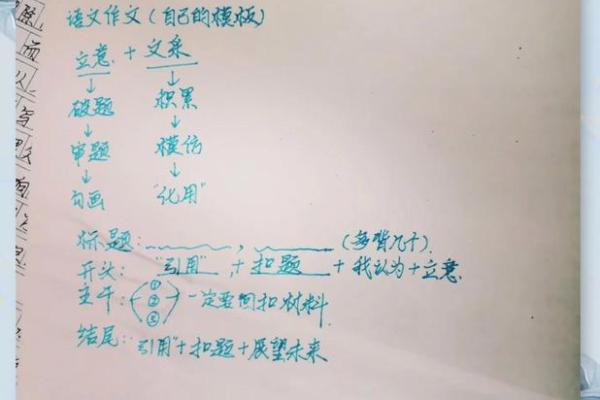 语文作文(自己的模版)
立意 + 文采
↓ ↓
破题 积累
↓ ↓
审题 模仿
↓ ↓
勾画 "化用"
标题:______,______(每背几十)
开头:"引用" + 扣题 + 我认为+立意.
主干:(①②③)一定要回扣材料.
结尾:"引用"+扣题+展望未来